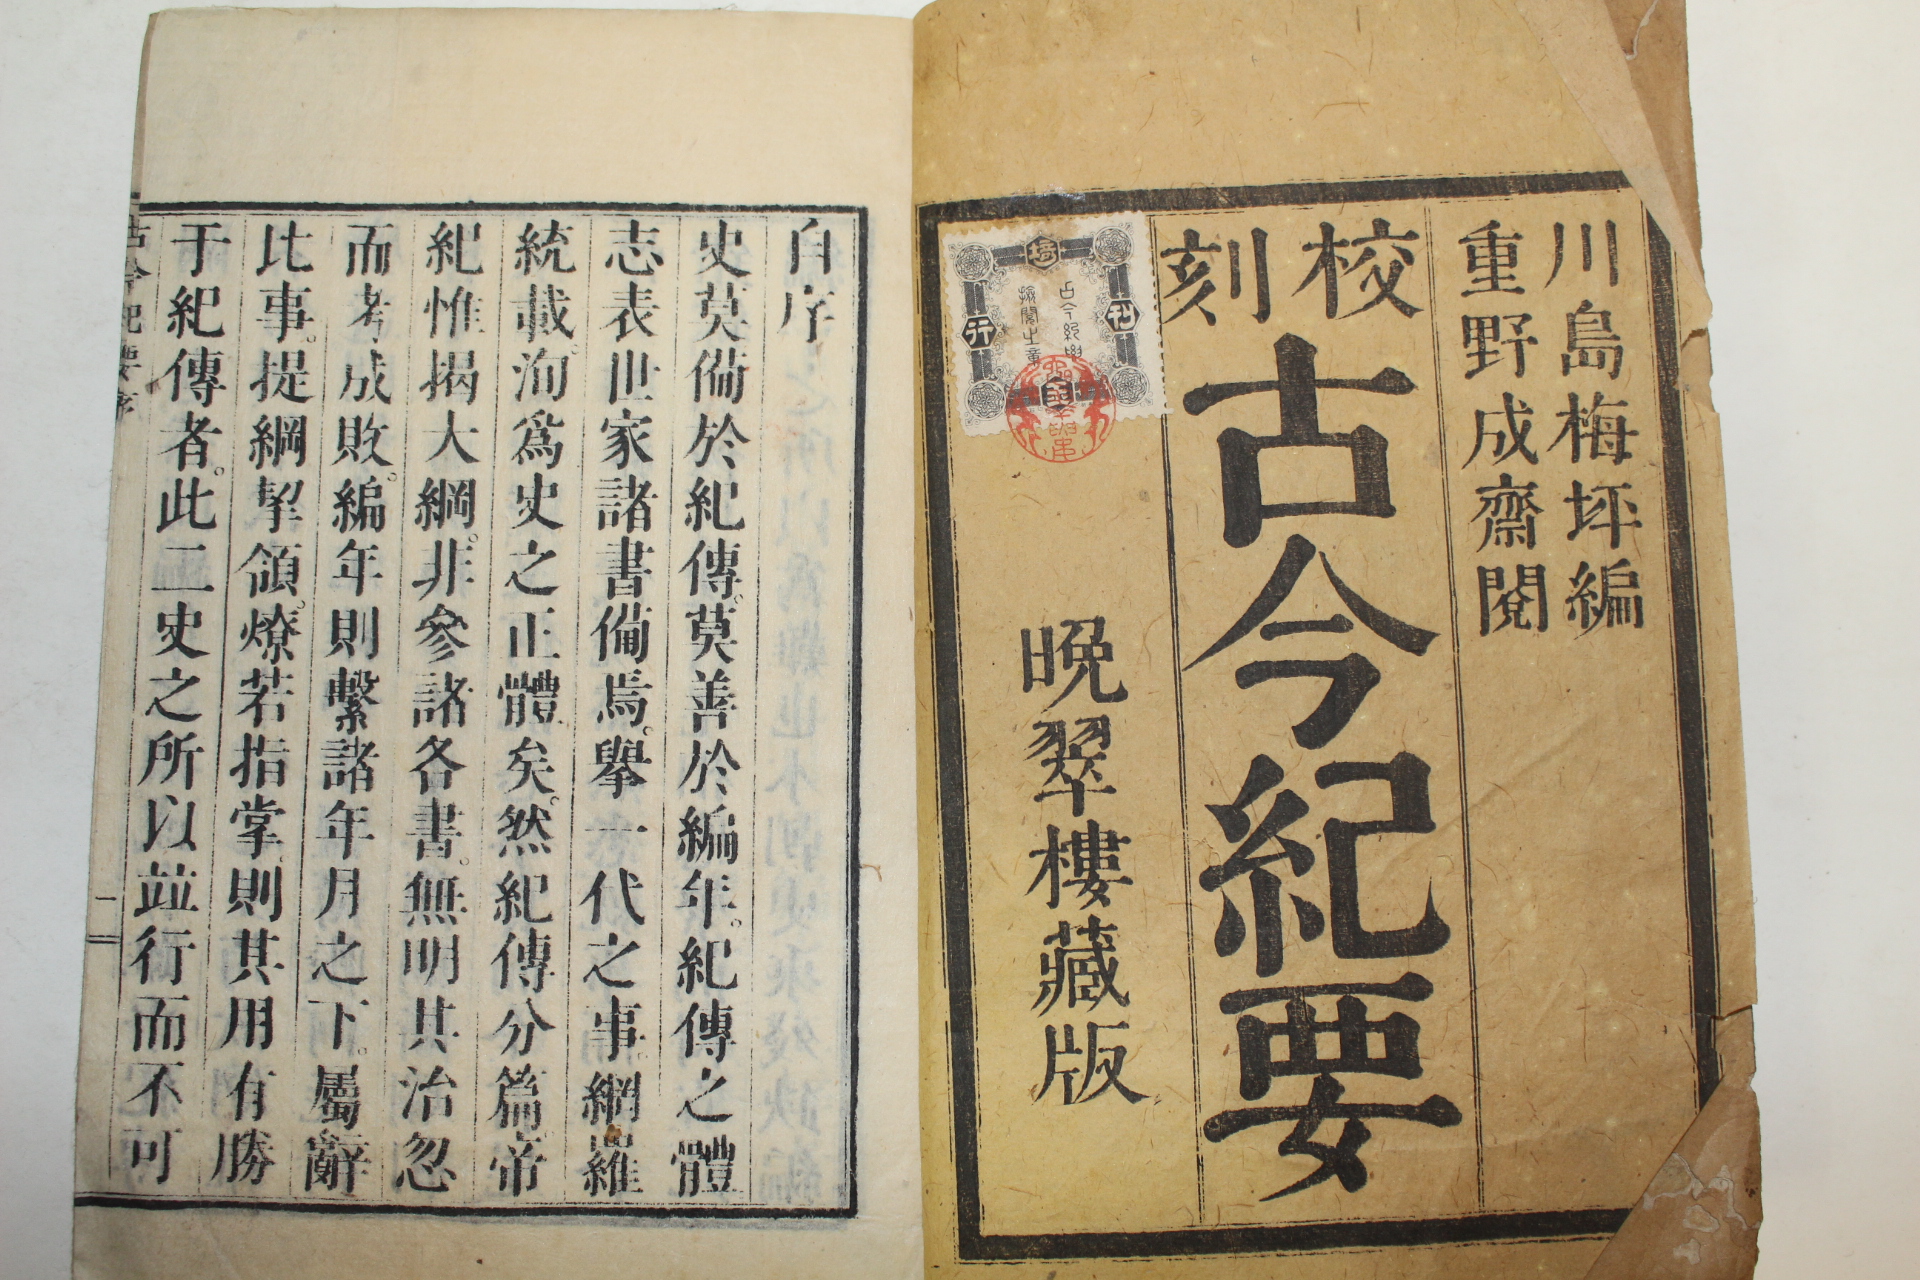 川島梅坪編
重野成齋閱
校刻
古今紀要
晩翠樓藏版
刊
行
古今紀要
自序
史莫備於紀傳。莫善於編年。紀傳之體
志表世家諸書備焉。擧一代之事。網羅
統載。洵爲史之正體矣。然紀傳分篇。帝
紀惟揭大綱。非參諸各書。無明其治忽
而考成敗。編年則繫諸年月之下。屬辭
比事。提綱挈領。燎若指掌。則其用有勝
于紀傳者。此二史之所以竝行而不可
古今紀要序
一